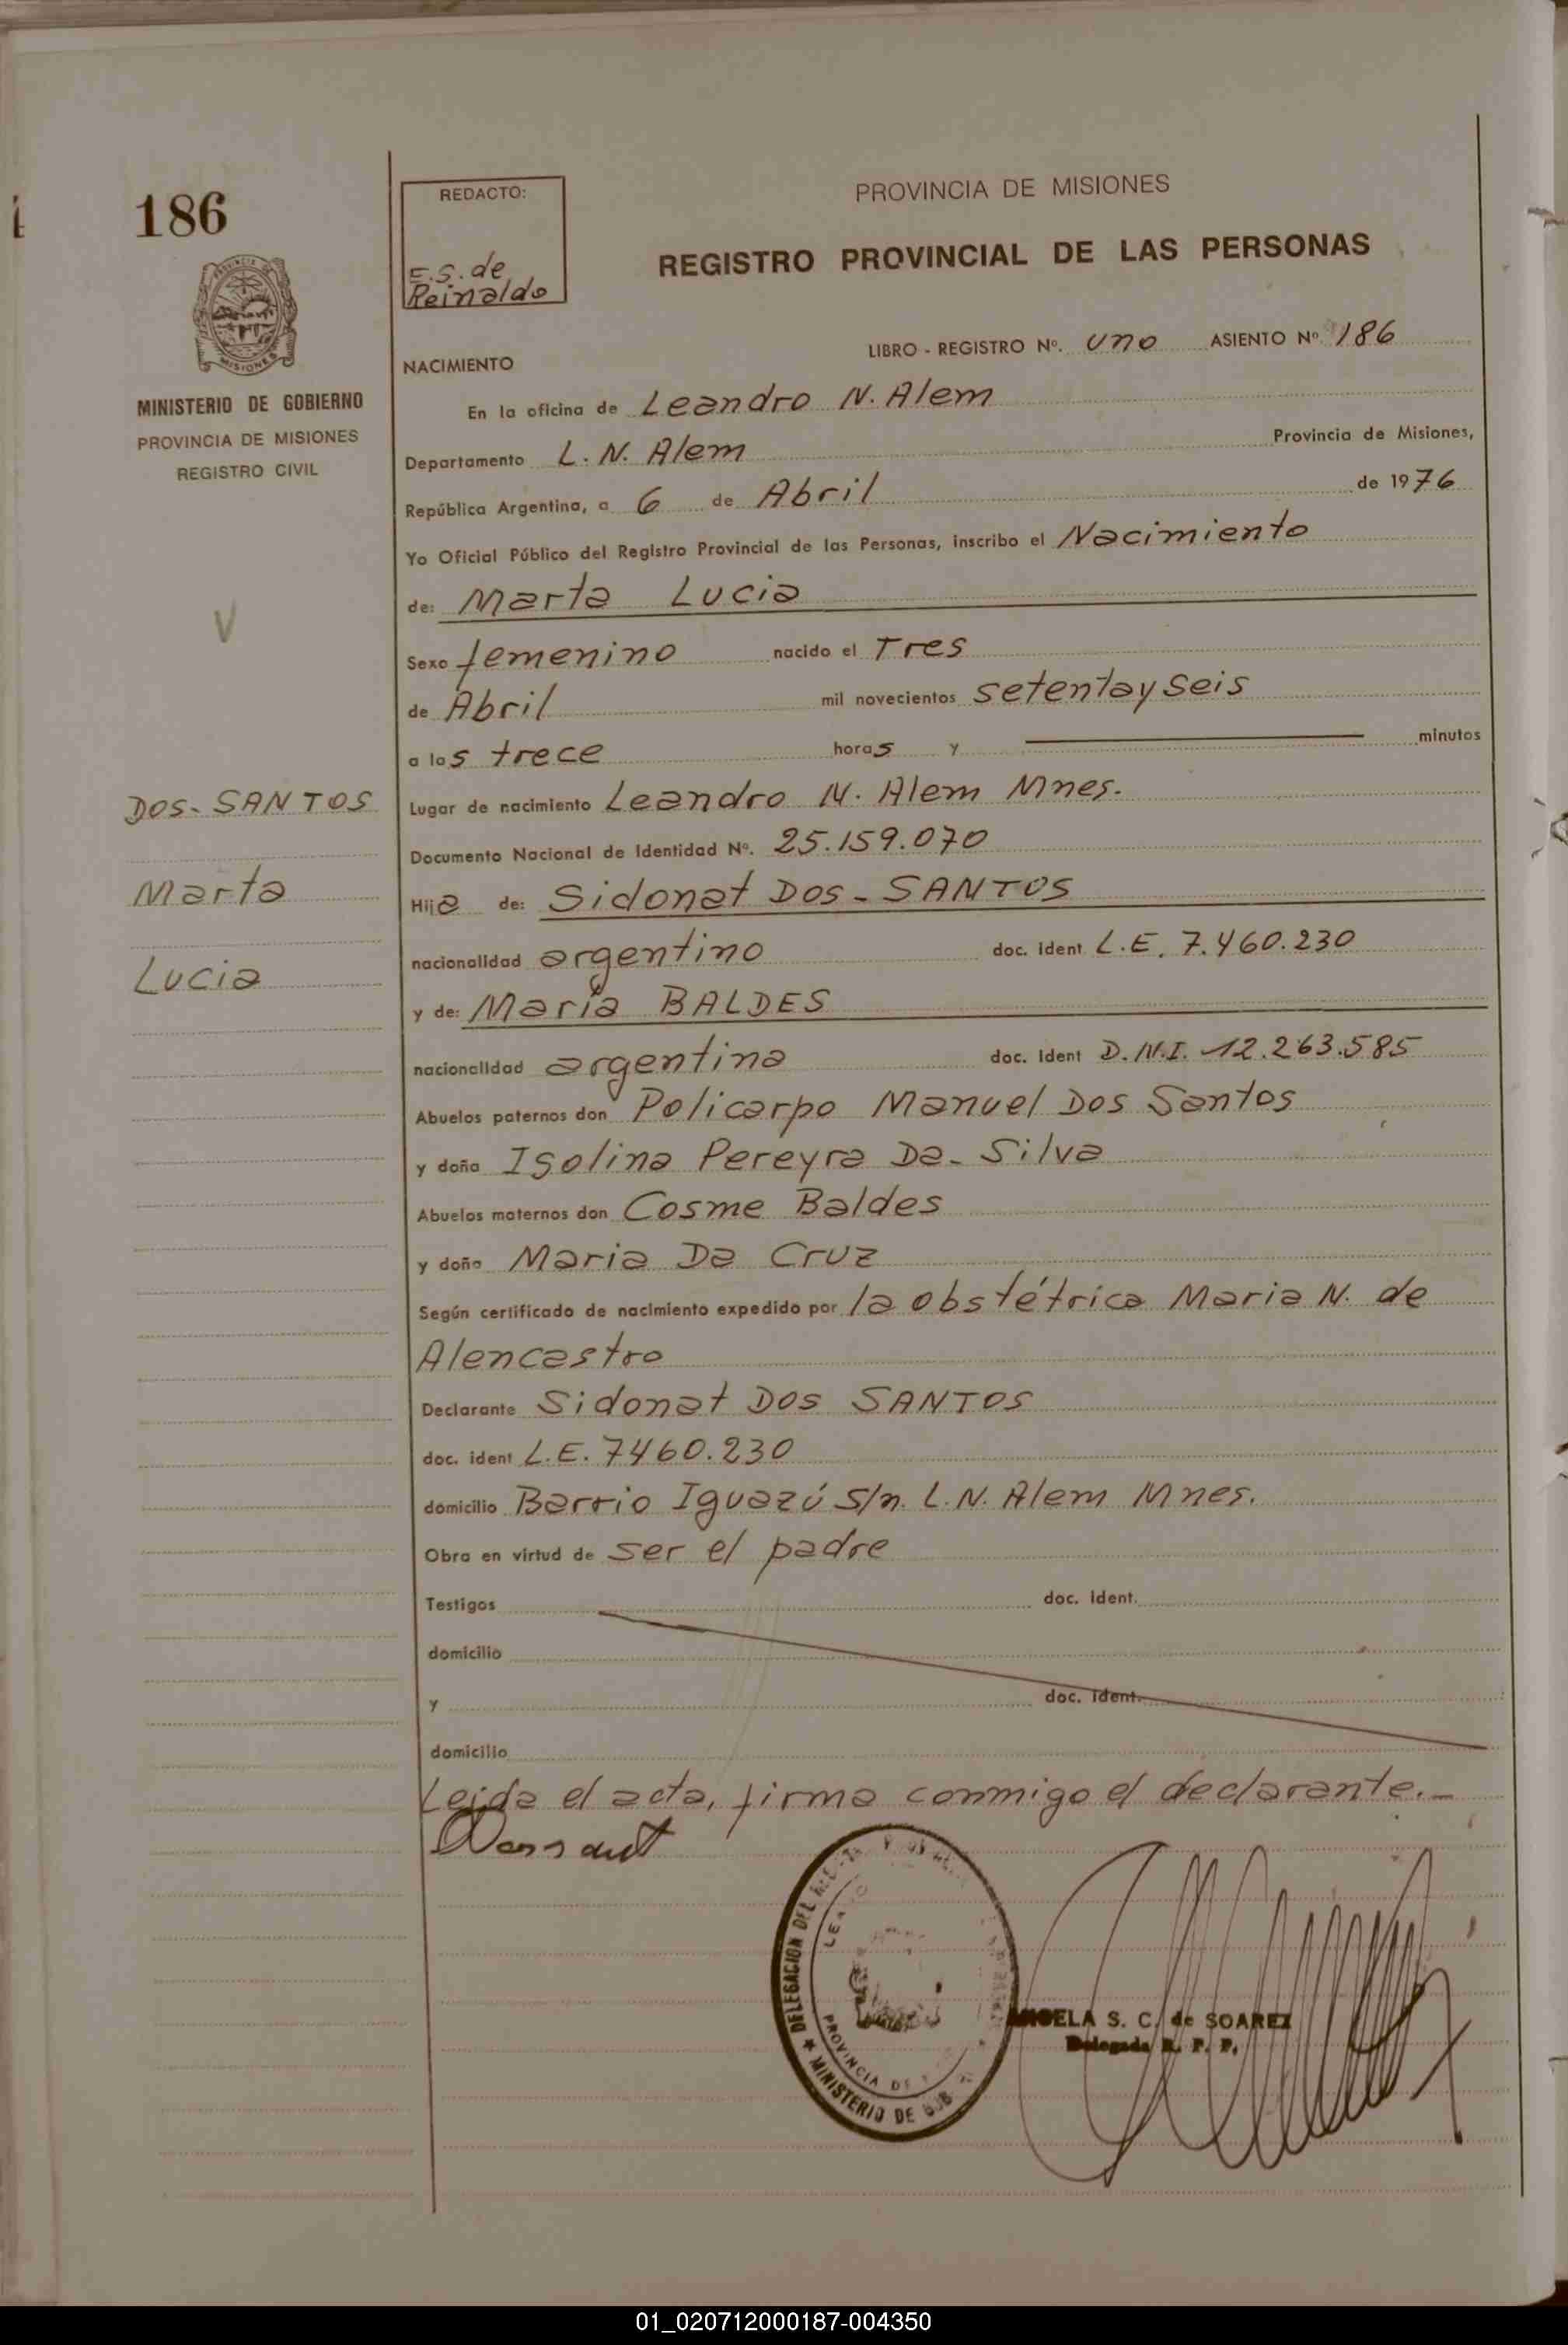 186
REDACTO:
E.S. de
Reinaldo
PROVINCIA DE MISIONES
REGISTRO PROVINCIAL DE LAS PERSONAS
MISIONES
MINISTERIO DE GOBIERNO
PROVINCIA DE MISIONES
REGISTRO CIVIL
DOS-SANTOS
Marta
Lucia
LIBRO - REGISTRO Nº. uno ASIENTO Nº 186
NACIMIENTO
En la oficina de Leandro N. Alem
Departamento L. N. Alem Provincia de Misiones,
República Argentina, a 6 de Abril de 1976
Yo Oficial Público del Registro Provincial de las Personas, inscribo el Nacimiento
de: Marta Lucia
Sexo femenino nacido el Tres
de Abril mil novecientos setentay seis
a las trece horas y minutos
Lugar de nacimiento Leandro N. Alem Mnes.
Documento Nacional de Identidad Nº. 25.159.070
Hija de: Sidonat DOS-SANTOS
nacionalidad argentino doc. ident L.E. 7.460.230
y de: María BALDES
nacionalidad argentina doc. ident D.N.I. 12.263.585
Abuelos paternos don Policarpo Manuel Dos Santos
y doña Isolina Pereyra Da-Silva
Abuelos maternos don Cosme Baldes
y doña Maria Da Cruz
Según certificado de nacimiento expedido por la obstétrica Maria N. de
Alencastro
Declarante Sidonat DOS SANTOS
doc. ident L.E. 7460.230
domicilio Barrio Iguazú S/n. L.N. Alem Mnes.
Obra en virtud de ser el padre
Testigos doc. ident.
domicilio
y doc. ident.
domicilio
Leida el acta, firma conmigo el declarante.-
DELEGACION DEL
PROVINCIA DE
MINISTERIO DE
ANGELA S. C. de SOAREZ
Delegada R. P. P.
01_020712000187-004350